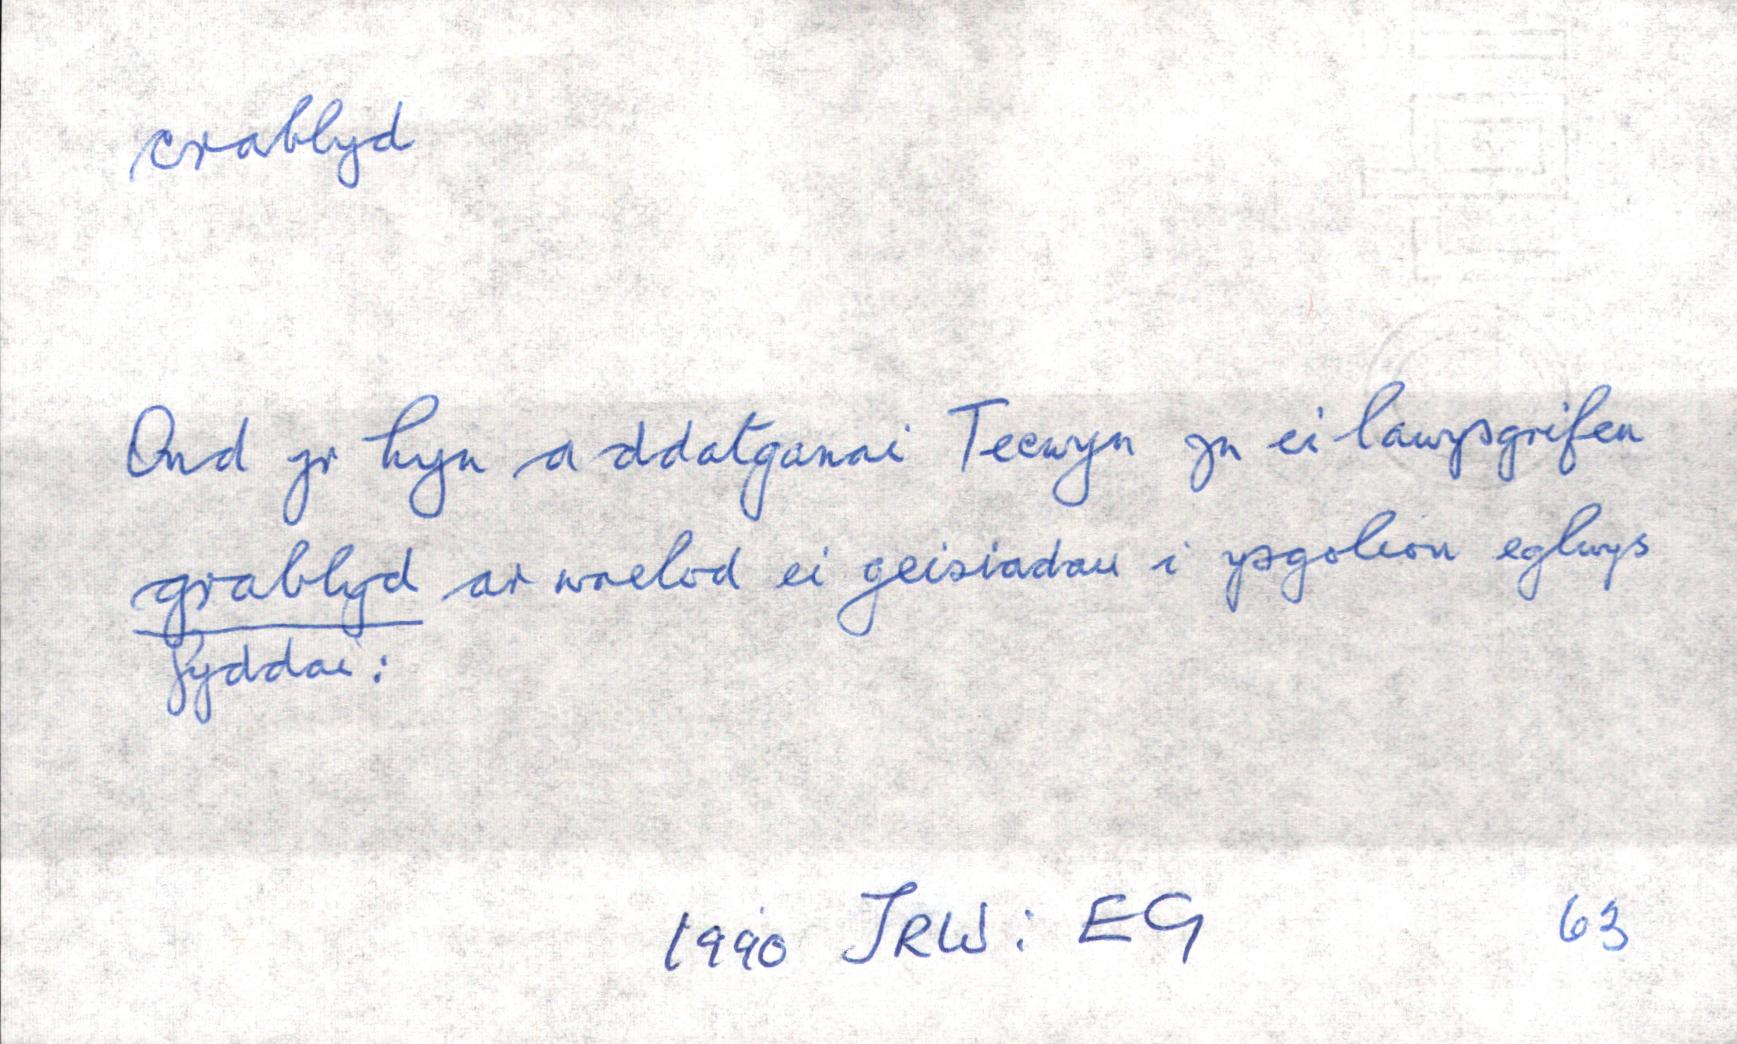 crablyd
Ond yr hyn a ddatganai Tecwyn yn ei lawysgrifen
grablyd ar waelod ei geisiadau i ysgolion eglwys
fyddai:
1990 JRW: EG 63